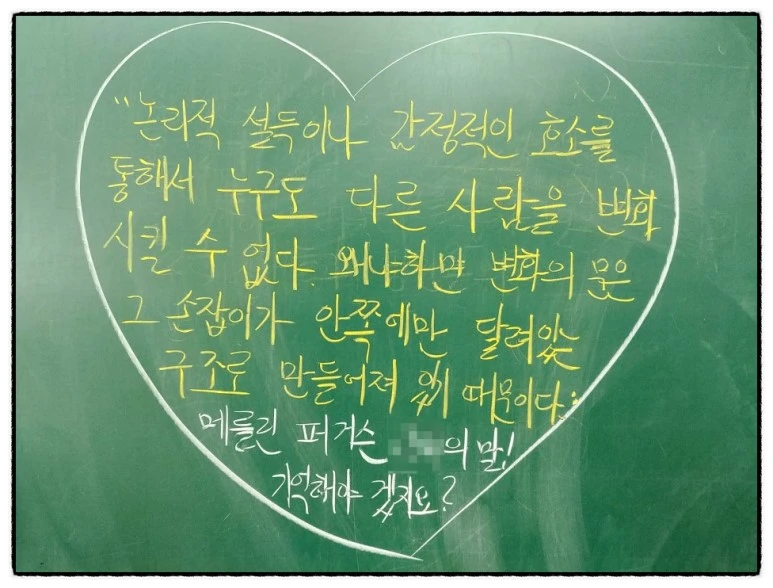 "논리적 설득이나 감정적인 효소를
통해서 누구도 다른 사람을 변화
시킬 수 없다. 왜냐하면 변화의 문은
그 손잡이가 안쪽에만 달려있는
구조로 만들어져 있기 때문이다."
메를린 퍼거슨 의 말!
기억해야 겠지요?